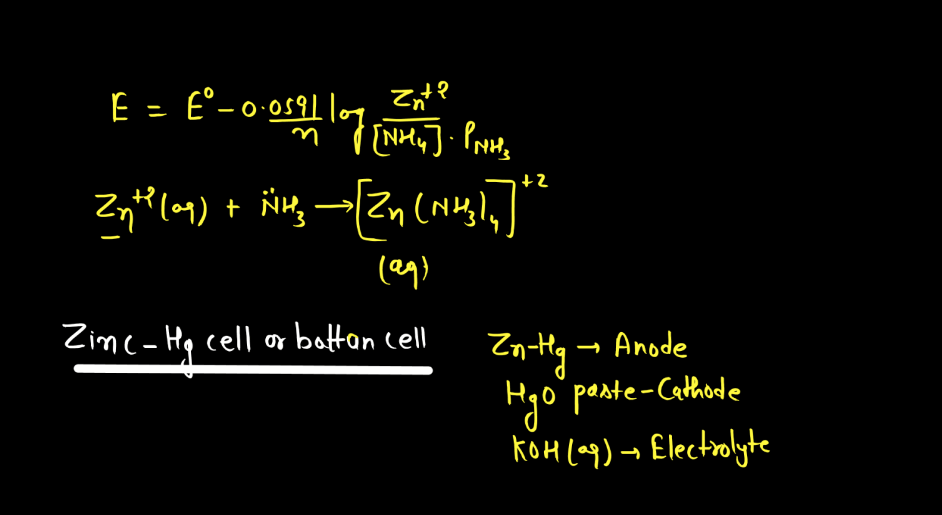 E = E⁰ - 0.0591/n log Zn⁺²/[NH₄] · P_NH₃
Zn⁺²(aq) + N̈H₃ → [Zn(NH₃)₄]⁺²
(aq)
Zinc-Hg cell or button cell
Zn-Hg → Anode
HgO paste-Cathode
KOH(aq) → Electrolyte